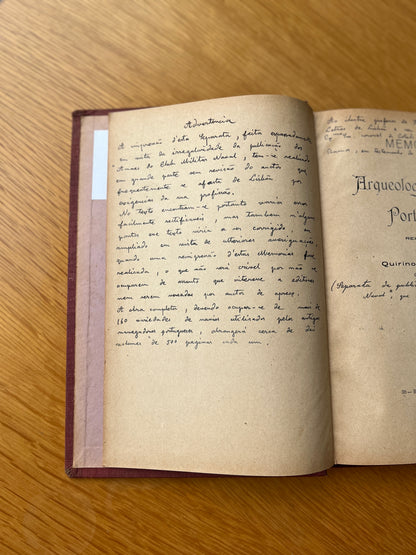 Advertencia
A impressão d'esta Separata, feita espaçadamente
em vista da irregularidade da publicação dos
Annaes do Club Militar Naval, tem-se realizado
em grande parte sem revisão do autor que
frequentemente se afasta de Lisbôa por
exigencias da sua profissão.
No texto encontram-se portanto varios erros
facilmente rectificaveis, mas tambem n'alguns
pontos esse texto viria a ser corrigido, ou
ampliado em vista de ulteriores averiguações
quando uma reimpressão d'estas Memorias fosse
realizada, o que não será crivel por não se
occuparem de assunto que interesse a editores
nem serem vasadas por autor de apreço.
A obra completa, devendo occupar-se de mais de
160 variedades de navios utilizados pelos antigos
navegadores portugueses, abrangerá cerca de dois
volumes de 500 paginas cada um.
Ao illustre professor da
Lisbôa
MEMO
Arqueolog
Port
Quirino
(Separata da public
Naval"